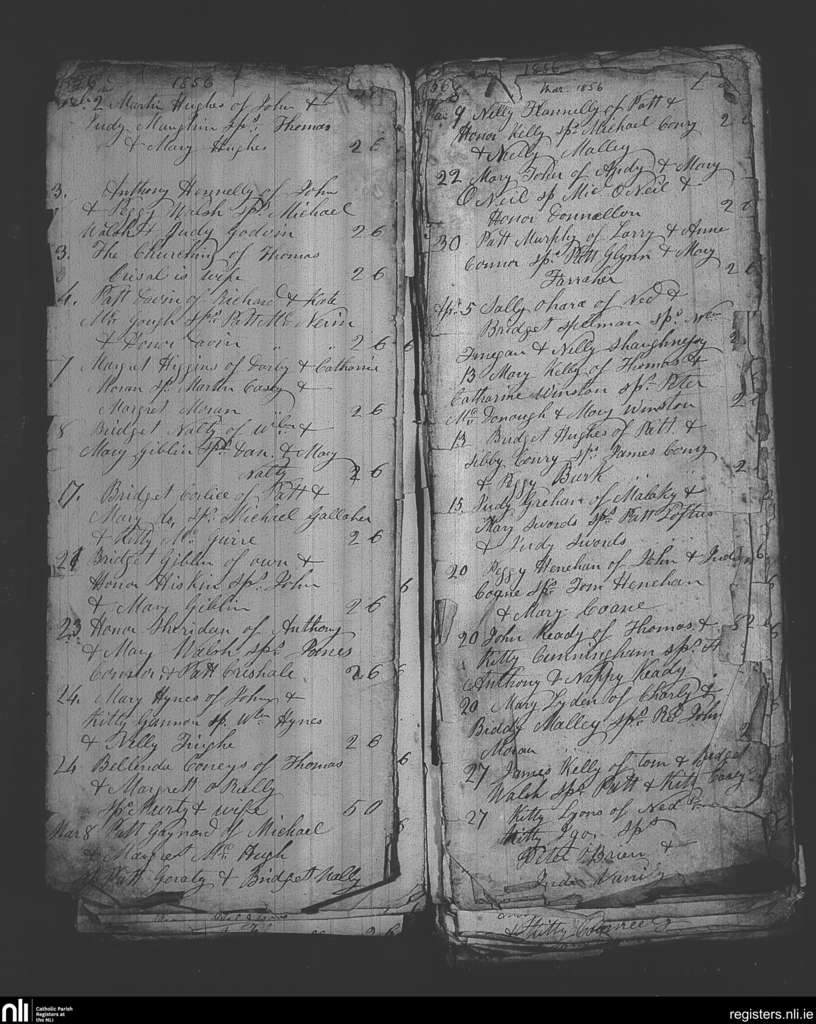 1856
2 Martin Hughes of John &
Judy Maughin Sps. Thomas
& Mary Hughes 2 6
3. Anthony Hennelly of John
& Peggy Walsh Sps. Michael
Walsh & Judy Godwin 2 6
3. The Churching of Thomas
Crisal is wife 2 6
4. Patt Gavin of Richard & Kate
Mc Gough Sps. Patt Mc Nevin
& Honor Gavin 2 6
7 Margret Higgins of Darby & Catharine
Moran Sps. Martin Casey &
Margret Moran 2 6
8 Bridget Nally of Wm. &
Mary Giblin Sps. Dan. & Mary
Nally 2 6
17. Bridget of Patt &
Mary do. Sps. Michael Gallaher
& Kitty Mc 2 6
21 Bridget Giblin of own &
Honor Hiskin Sps. John
& Mary Giblin 2 6
23 Honor Sheridan of Anthony
& Mary Walsh Sps.
Connor & Patt Crishale 2 6
24. Mary Hynes of John &
Kitty Gannon Sp. Wm. Hynes
& Nelly 2 6
24 Bellinda Coneys of Thomas
& Margrett o Reilly
Sps. Murty & wife 5 0
Mar 8 Patt Gaynard of Michael
& Margret Mc. Hugh
Patt Geraty & Bridget Nally
1856
Mar. 1856
Mar 9 Nelly Hannelly of Patt &
Honor Kelly Sps. Michael Conry
& Nelly Malley
22 Mary John of Andy & Mary
O Neil Sp Mic. O Neil &
Honor Donnellon
30 Patt Murphy of Larry & Anne
Connor Sps. Patt Glynn & Mary
Farraher
Apr. 5 Sally Ohara of Ned &
Bridget Spelman Sps. Wm
Finegan & Nelly Shaughnessy
13 Mary Kelly of Thomas &
Catharine Winston Sps. Peter
Mc. Donough & Mary Winston
13 Bridget Hughes of Patt &
Sibby Conry Sps. James Conry
& Peggy Burk
15 Judy Grehan of Malaky &
Mary Swords Sps. Patt Loftus
& Judy Swords
20 Peggy Henehan of John & Judy
Coane Sps. Tom Henehan
& Mary Coane
20 John Keady of Thomas &
Kitty Cunningham Sps. Ft.
Anthony & Nappy Keady
20 Mary Lyden of Charly &
Biddy Malley Sps. Rd. John
Moran
27 James Kelly of tom & Bridget
Walsh Sps Patt & Kitty Casey
27 Kitty Lyons of Ned
Kitty Sps
Peter O Brien &
& Kitty
nli
Catholic Parish
Registers at
the NLI
registers.nli.ie